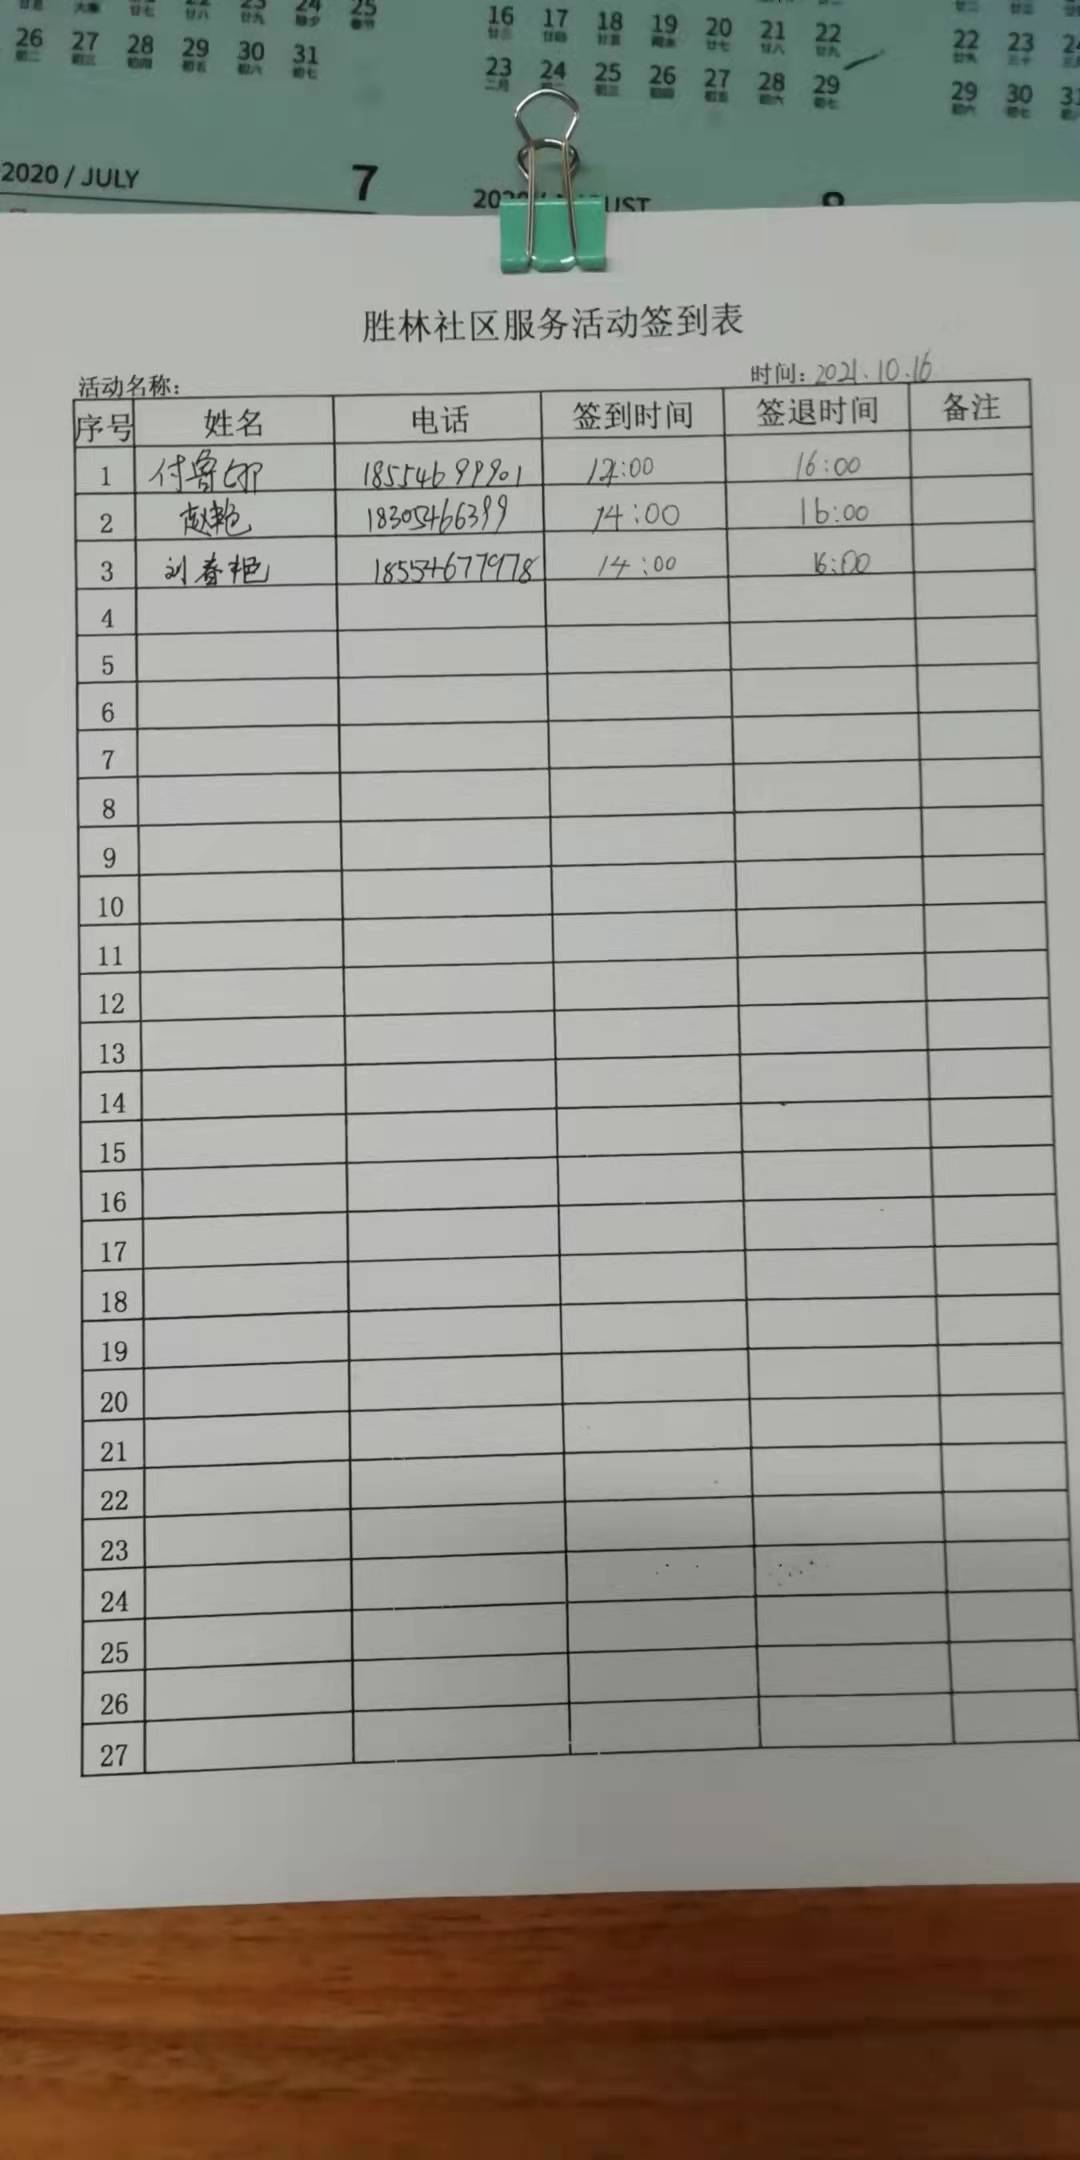 25
26 27 28 29 30 31
初二 初三 初四 初五 初六 初七
16 17 18 19 20 21 22
23 24 25 26 27 28 29
22 23
29 30 31
2020 / JULY 7
胜林社区服务活动签到表
活动名称: 时间: 2021.10.16
序号 姓名 电话 签到时间 签退时间 备注
1 18554699901 16:00
2 赵艳 18305466399 14:00 16:00
3 刘春艳 18554677978 14:00 16:00
4
5
6
7
8
9
10
11
12
13
14
15
16
17
18
19
20
21
22
23
24
25
26
27